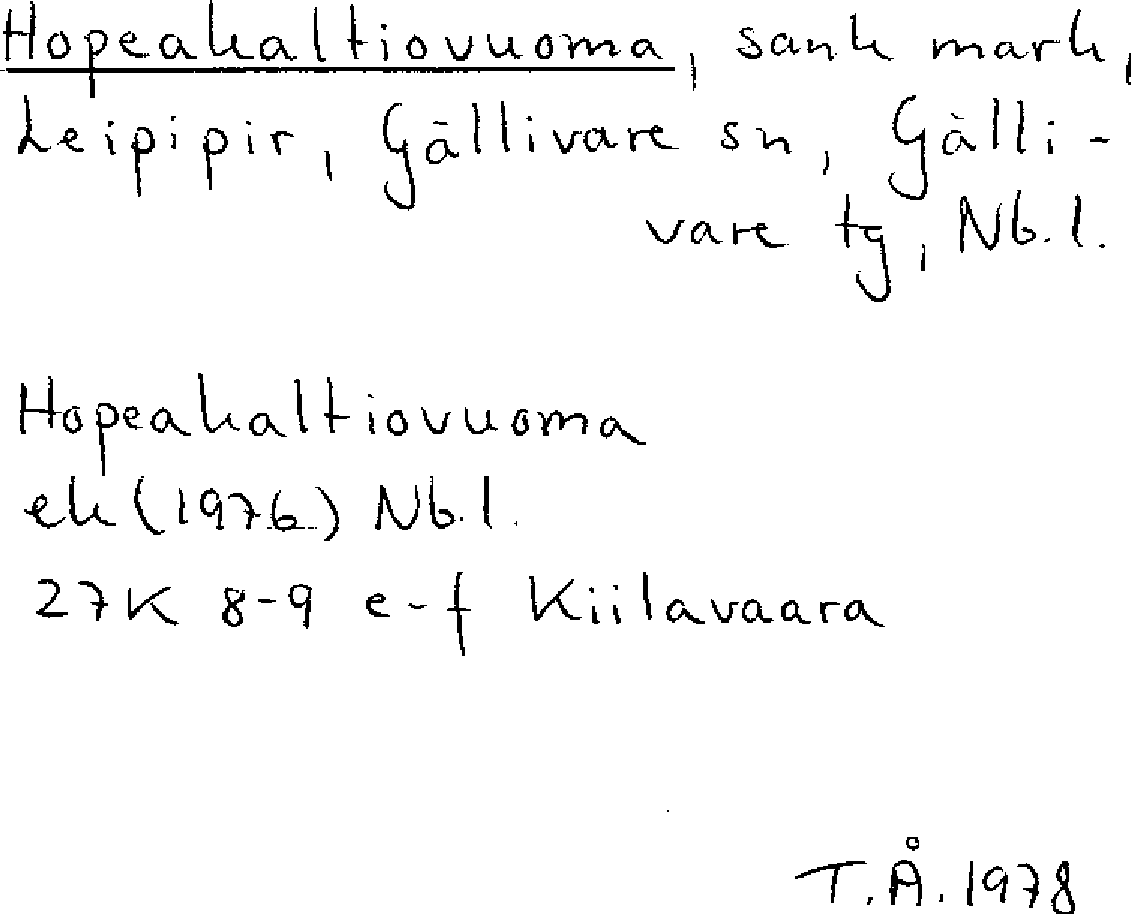 Hopeakaltiovuoma, sank mark,
Leipipir, Gällivare sn, Gälli-
vare tg, Nb.l.
Hopeakaltiovuoma
ek (1976) Nb.l.
27K 8-9 e-f Kiilavaara
T.Å. 1978